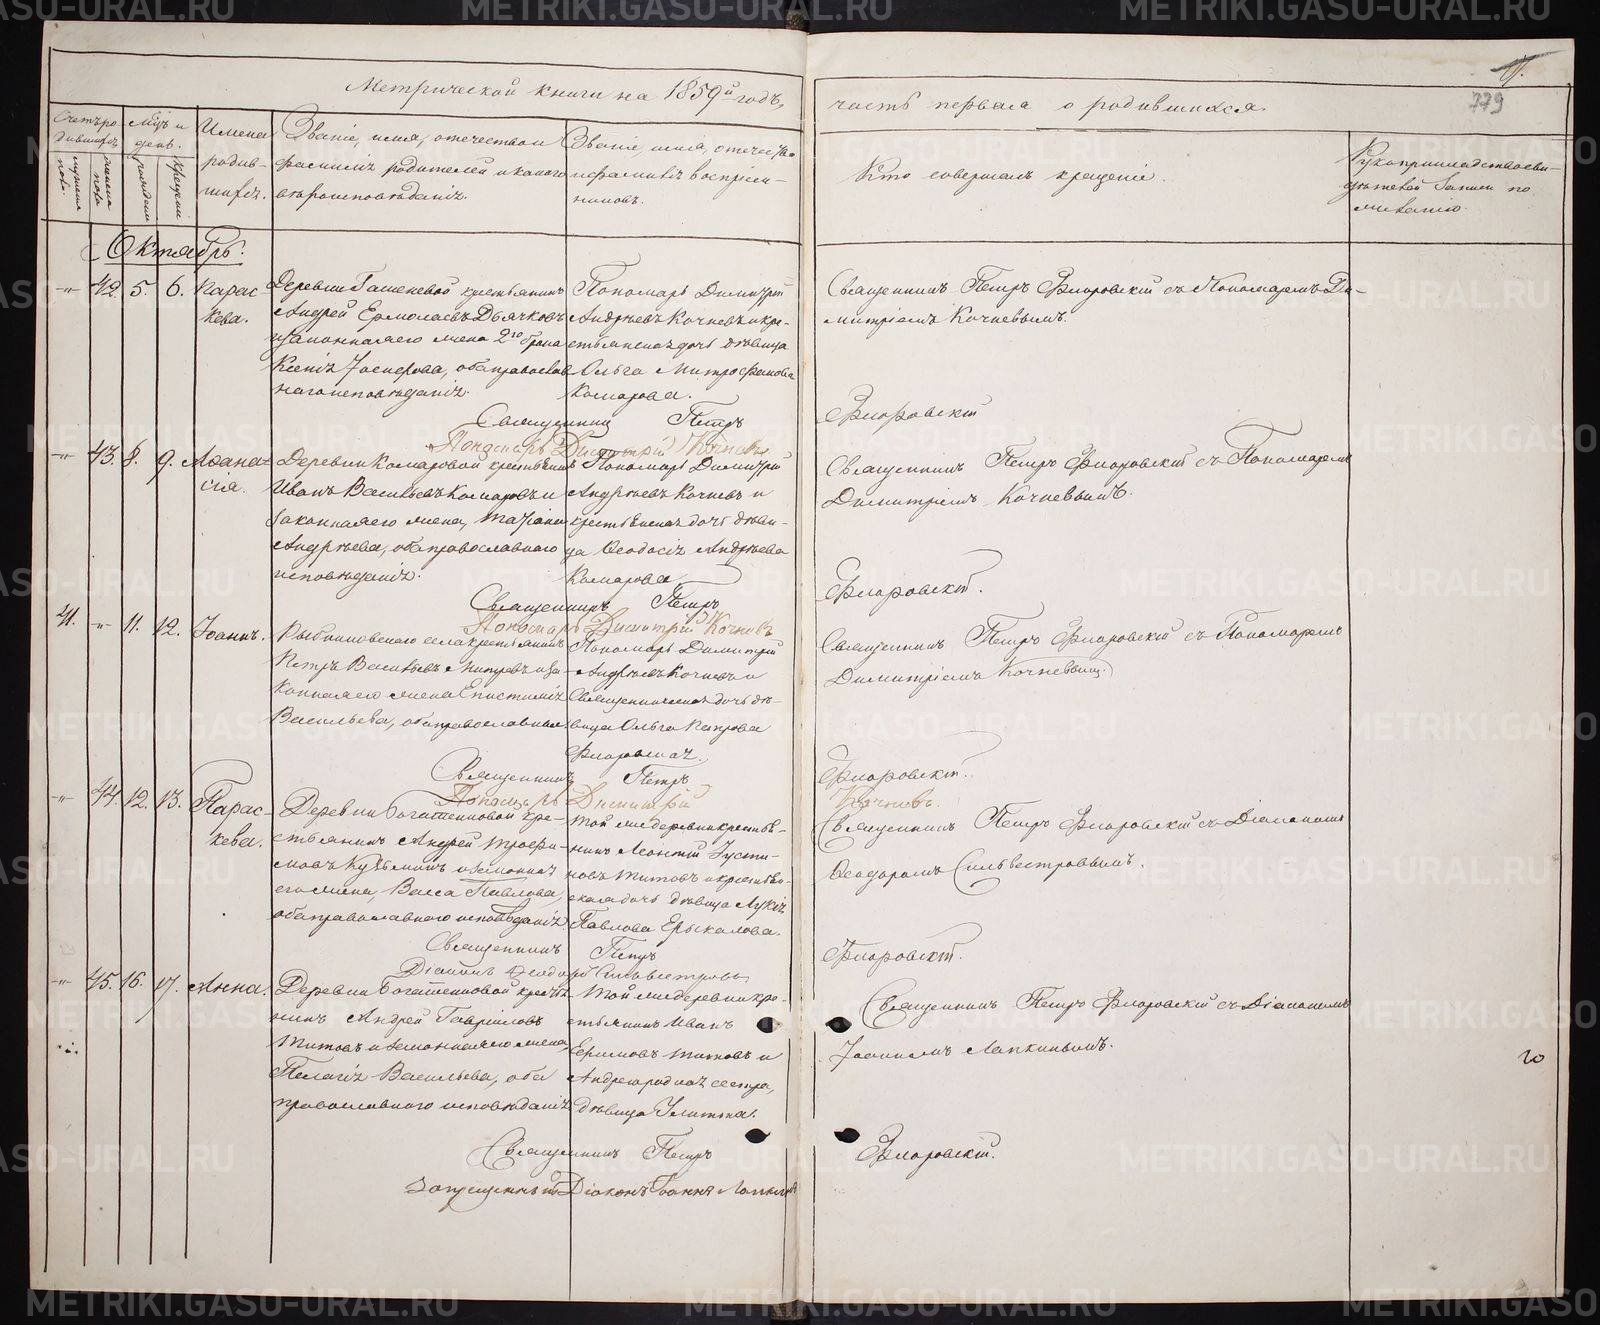 METRIKI.GASO-URAL.RU
Метрической книги на 1859й годъ,
часть первая о родившихся.
779
Счетъ ро-
дившихся
Мѣц и
день.
Имена
родив-
шихся.
Званіе, имя, отчество и
фамилія родителей и какого
вѣроисповѣданія.
Званіе, имя, отчество
и фамилія воспріем-
никовъ.
Кто совершалъ крещеніе.
Рукоприкладство сви-
дѣтелей записи по
желанію.
мужеска
пола.
женска
пола
рожденія
крещенія
Октябрь.
-"- 42. 5. 6. Парас-
кева.
Деревни Гашеневой крестьянинъ
Андрей Ермолаевъ Дьячковъ
и законная его жена 2го брака
Ксенія Іосифова, оба православ-
наго исповѣданія.
Пономарь Димитрій
Андреевъ Кочневъ и кре-
стьянская дочь дѣвица
Ольга Митрофанова
Комарова.
Священникъ Петръ Флоровскій съ Пономаремъ Ди-
митріемъ Кочневымъ.
Священникъ Петръ Флоровскій
Пономарь Димитрій Кочневъ
-"- 43. 8. 9. Аѳана-
сія.
Деревни Комаровой крестьянинъ
Иванъ Васильевъ Комаровъ и
законная его жена, Татіана
Андреева, оба православнаго
исповѣданія.
Пономарь Димитрій
Андреевъ Кочневъ и
крестьянская дочь дѣви-
ца Ѳеодосія Андреева
Комарова
Священникъ Петръ Флоровскій съ Пономаремъ
Димитріемъ Кочневымъ.
Священникъ Петръ Флоровскій.
Пономарь Димитрій Кочневъ
41. -"- 11. 12. Іоаннъ.
села крестьянинъ
Петръ Васильевъ и за-
конная его жена Епистимія
Васильева, оба православные.
Пономарь Димитрій
Андреевъ Кочневъ и
Священническая дочь дѣ-
вица Ольга Петрова
Флоровская.
Священникъ Петръ Флоровскій съ Пономаремъ
Димитріемъ Кочневымъ
Священникъ Петръ Флоровскій.
Пономарь Димитрій Кочневъ.
-"- 44. 12. 13. Парас-
кева.
Деревни Богатенковой кре-
стьянинъ Андрей Трофи-
мовъ Кузьминъ и законная
его жена, Васса Павлова,
оба православнаго исповѣданія.
Той же деревни крестья-
нинъ Леонтій Іусти-
новъ Титовъ и крестьян-
ская дочь дѣвица Лукія
Павлова Ерыкалова.
Священникъ Петръ Флоровскій съ Діакономъ
Ѳеодоромъ Сильвестровымъ.
Священникъ Петръ Флоровскій.
Діаконъ Ѳеодоръ Сильвестровъ
-"- 45. 16. 17. Анна.
Деревни Богатенковой крестья-
нинъ Андрей Гавріиловъ
Титовъ и законная его жена,
Пелагія Васильева, оба
православнаго исповѣданія.
Той же деревни кре-
стьянинъ Иванъ
Ефимовъ Титовъ и
Андрея родная сестра,
дѣвица Улитта.
Священникъ Петръ Флоровскій съ Діакономъ
Іоанномъ Лапкинымъ.
Священникъ Петръ Флоровскій.
Запрещенный Діаконъ Іоаннъ Лапкинъ